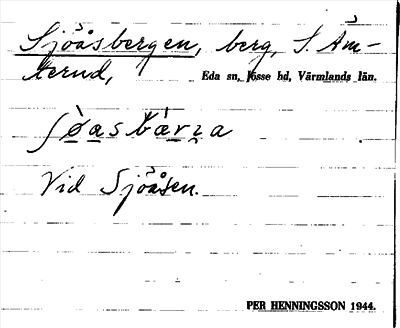 Sjöåsbergen, berg, S. Åm-
terud,
Eda sn, Jösse hd, Värmlands län.
Vid Sjöåsen.
PER HENNINGSSON 1944.